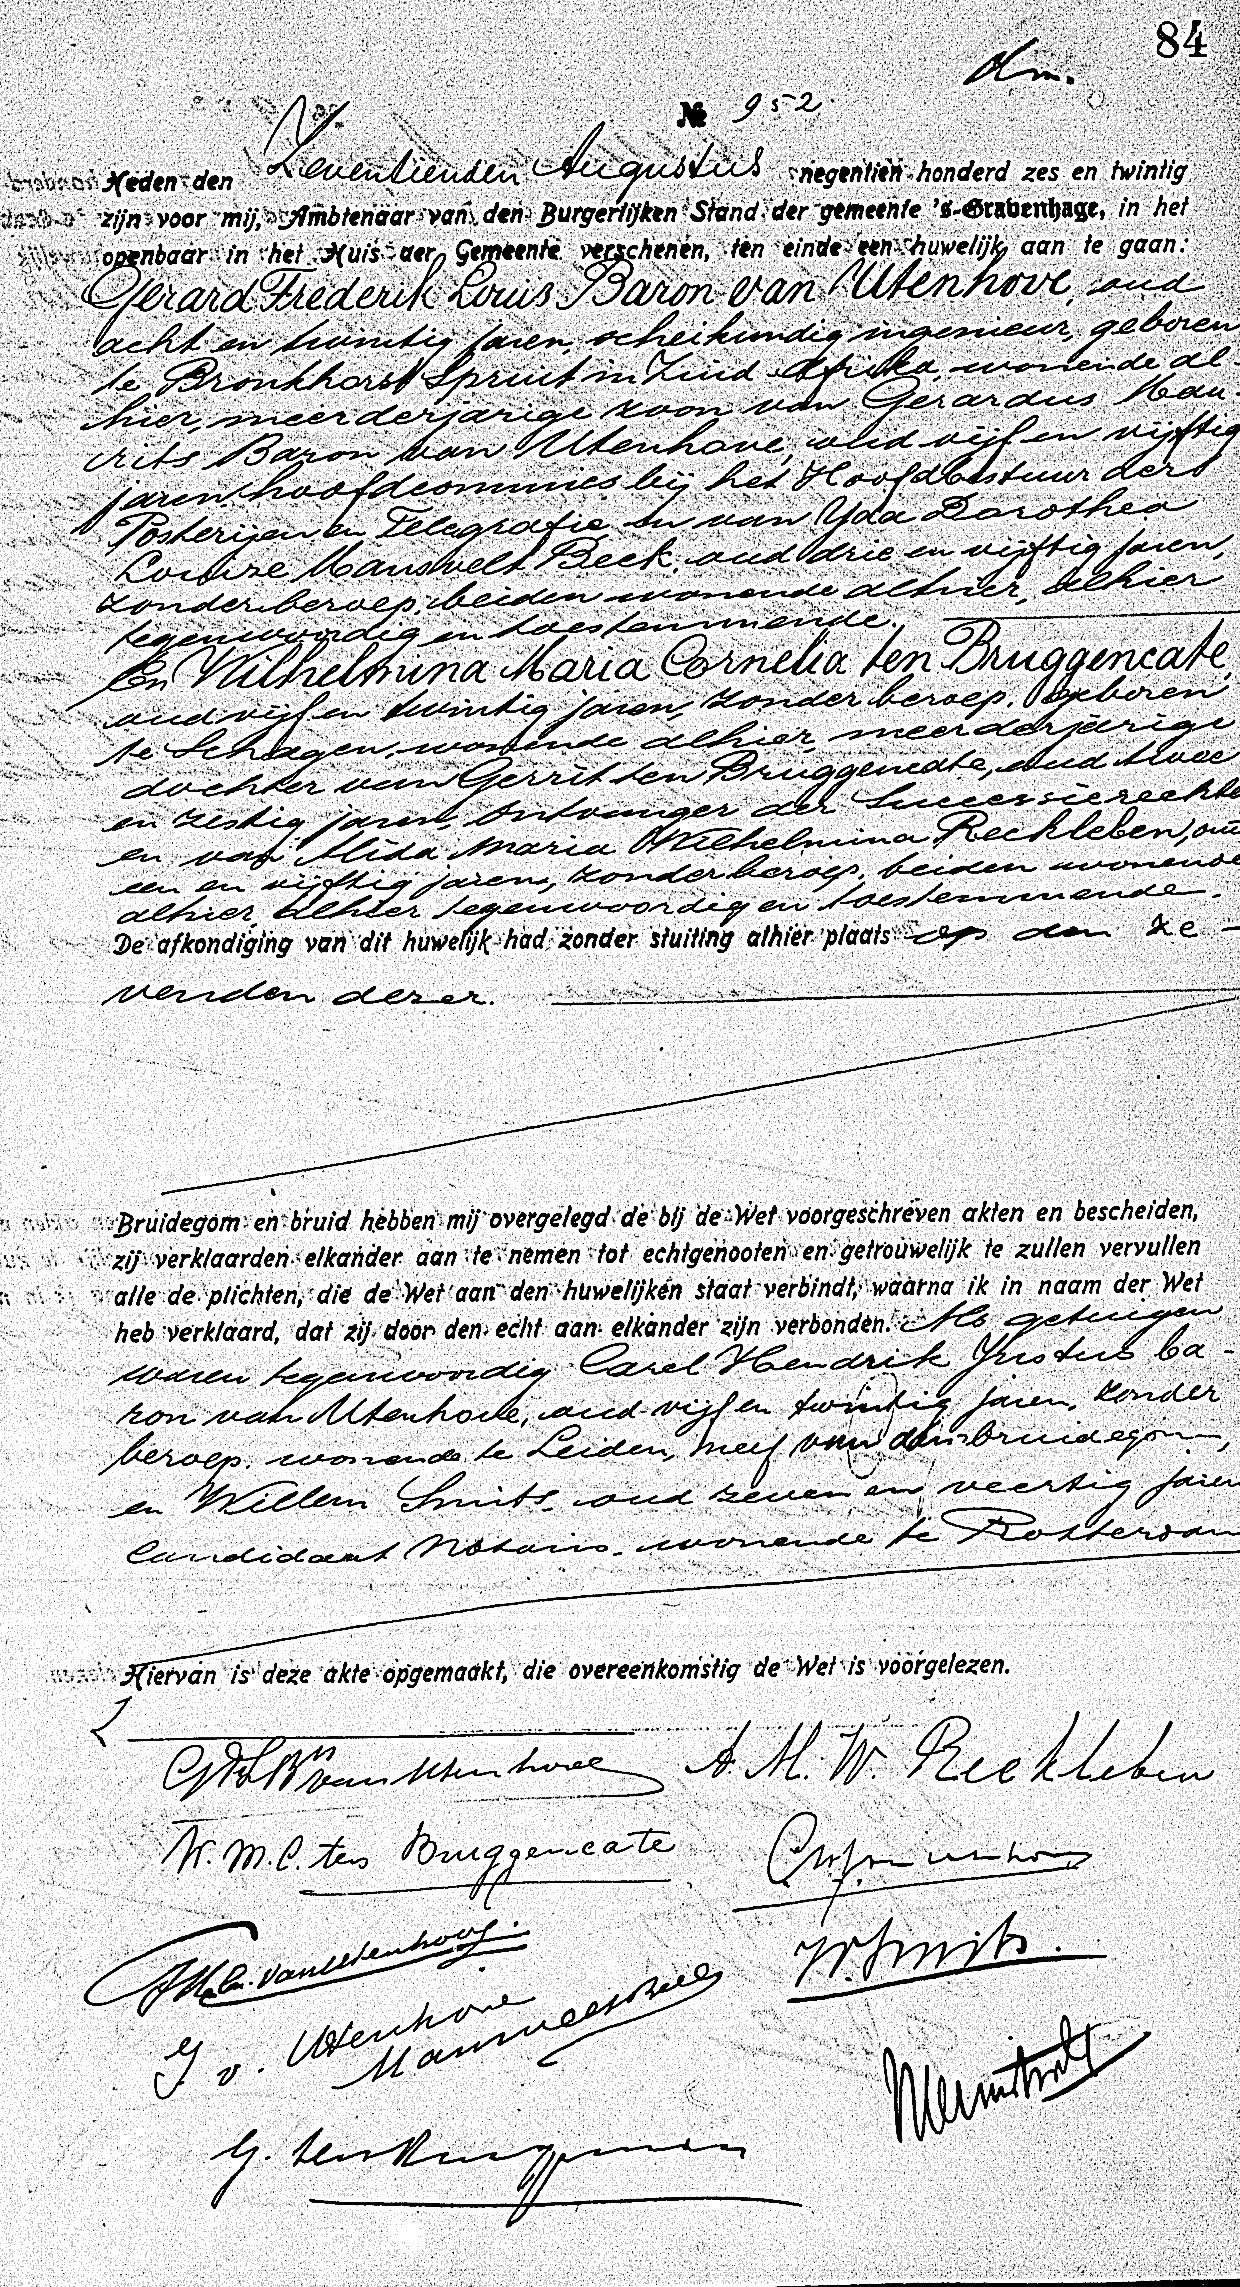 84
dm.
№ 952
Heden den Zeventienden Augustus negentien honderd zes en twintig
zijn voor mij, Ambtenaar van den Burgerlijken Stand der gemeente 's-Gravenhage, in het
openbaar in het Huis der Gemeente verschenen, ten einde een huwelijk aan te gaan:
Gerard Frederik Louis Baron van Utenhove, oud
acht en twintig jaren, scheikundig ingenieur, geboren
te Bronkhorst Spruit in Zuid-Afrika, wonende al-
hier, meerderjarige zoon van Gerardus Mau-
rits Baron van Utenhove, oud vijf en vijftig
jaren, hoofdcommies bij het Hoofdbestuur der
Posterijen en Telegrafie, en van Yda Dorothea
Louize Mansvelt Beck, oud drie en vijftig jaren,
zonder beroep, beiden wonende alhier, alhier
tegenwoordig en toestemmende.
En Wilhelmina Maria Cornelia ten Bruggencate,
oud vijf en twintig jaren, zonder beroep, geboren
te Schagen, wonende alhier, meerderjarige
dochter van Gerrit ten Bruggencate, oud twee
en zestig jaren, Ontvanger der Successierechten
en van Alida Maria Wilhelmina Reckleben, oud
een en vijftig jaren, zonder beroep, beiden wonende
alhier, alhier tegenwoordig en toestemmende.
De afkondiging van dit huwelijk had zonder stuiting alhier plaats op den ze-
venden dezer.
Bruidegom en bruid hebben mij overgelegd de bij de Wet voorgeschreven akten en bescheiden,
zij verklaarden elkander aan te nemen tot echtgenooten en getrouwelijk te zullen vervullen
alle de plichten, die de Wet aan den huwelijken staat verbindt, waarna ik in naam der Wet
heb verklaard, dat zij door den echt aan elkander zijn verbonden. Als getuigen
waren tegenwoordig Carel Hendrik Justus ba-
ron van Utenhove, oud vijf en twintig jaren, zonder
beroep, wonende te Leiden, neef van den bruidegom,
en Willem Smits, oud zeven en veertig jaren
Candidaat Notaris, wonende te Rotterdam
Hiervan is deze akte opgemaakt, die overeenkomstig de Wet is voorgelezen.
GFL Bn van Utenhove A. M. W. Reckleben
W. M. C. ten Bruggencate
van Utenhove
W. Smits.
Y v. Utenhove
Mansvelt Beck
G. ten Bruggencate